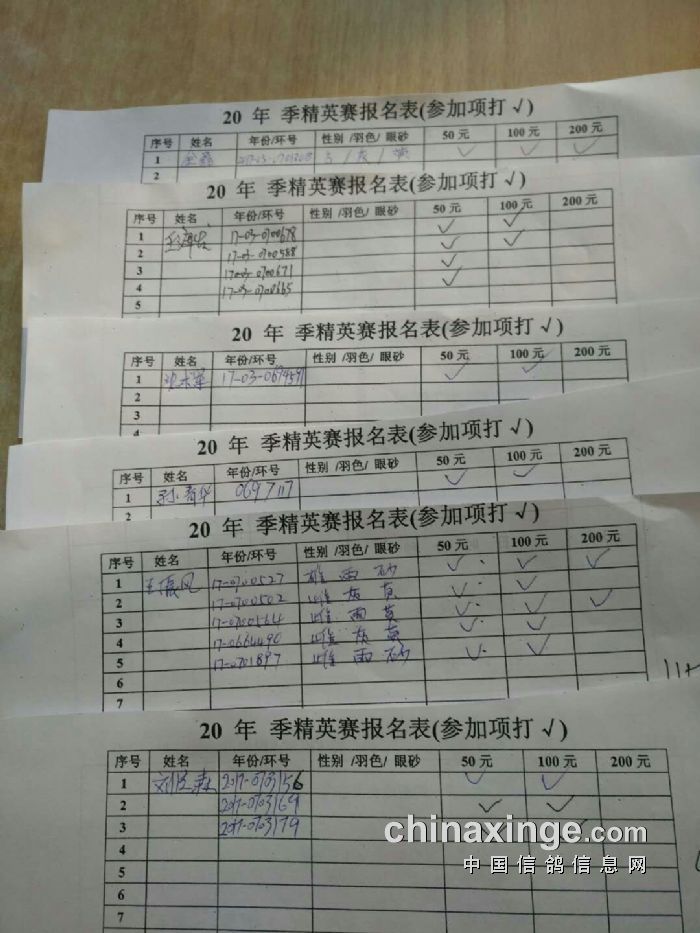 20 年 季精英赛报名表(参加项打 √)
序号 姓名 年份/环号 性别 /羽色/ 眼砂 50 元 100 元 200 元
1 ✓ ✓ ✓
2
20 年 季精英赛报名表(参加项打 √)
序号 姓名 年份/环号 性别 /羽色/ 眼砂 50 元 100 元 200 元
1 17-03-0700678 ✓ ✓
2 17-03-0700588 ✓ ✓
3 17-03-0700671 ✓
4 17-03-0700665 ✓
5
20 年 季精英赛报名表(参加项打 √)
序号 姓名 年份/环号 性别 /羽色/ 眼砂 50 元 100 元 200 元
1 17-03-0679591 ✓ ✓
2
3
4
20 年 季精英赛报名表(参加项打 √)
序号 姓名 年份/环号 性别 /羽色/ 眼砂 50 元 100 元 200 元
1 0697117 ✓ ✓
2
20 年 季精英赛报名表(参加项打 √)
序号 姓名 年份/环号 性别 /羽色/ 眼砂 50 元 100 元 200 元
1 17-0700527 雄 雨 砂 ✓ ✓ ✓
2 17-0700502 雌 灰 黄 ✓ ✓
3 17-0700564 雌 雨 黄 ✓ ✓ ✓
4 17-0664490 雌 灰 黄 ✓ ✓
5 17-0701897 雌 雨 砂 ✓ ✓
6
7
20 年 季精英赛报名表(参加项打 √)
序号 姓名 年份/环号 性别 /羽色/ 眼砂 50 元 100 元 200 元
1 2017-0703156 ✓ ✓
2 2017-0703169 ✓ ✓
3 2017-0703179
4
5
6
7
chinaxinge.com
中国信鸽信息网